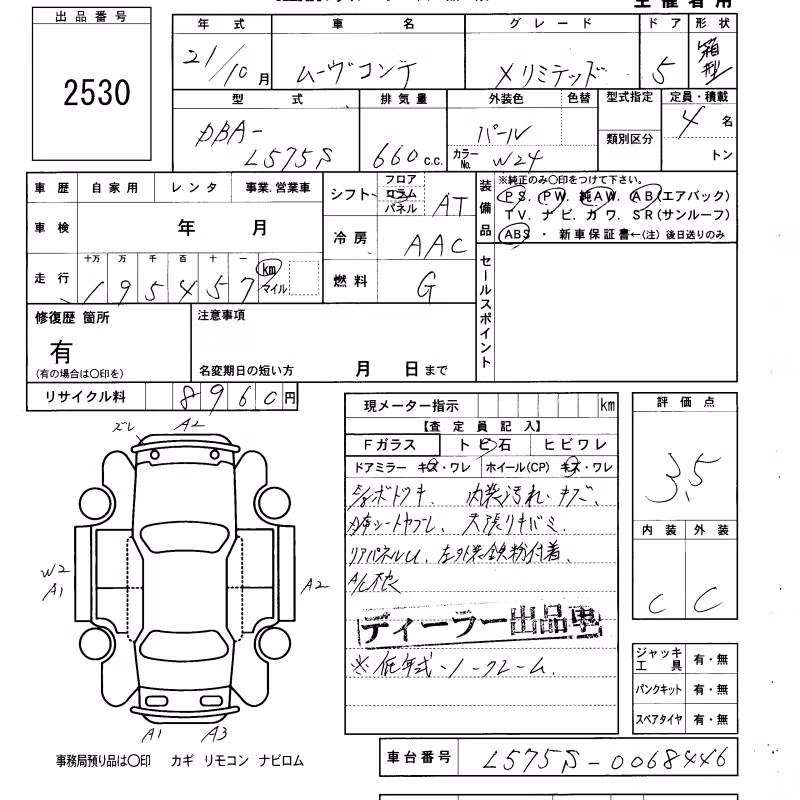 主催者用
出品番号
2530
年式 車名 グレード ドア 形状
21/10月 ムーヴコンテ Xリミテッド 5 箱型
型式 排気量 外装色 色替 型式指定 定員・積載
DBA-L575S 660c.c. パール カラーNo. W24 類別区分 4名
トン
車歴 自家用 レンタ 事業.営業車
車検 年 月
走行 十万 万 千 百 十 一 km マイル
195457
シフト フロア コラム パネル AT
冷房 AAC
燃料 G
装備品 ※純正のみ〇印をつけて下さい。
PS. PW. 純AW. AB(エアバック)
TV. ナビ. カワ. SR(サンルーフ)
ABS ・ 新車保証書←(注)後日送りのみ
セールスポイント
修復歴 箇所
有
(有の場合は〇印を)
注意事項
名変期日の短い方 月 日まで
リサイクル料 8960円
現メーター指示 km
【査定員記入】
Fガラス トビ石 ヒビワレ
ドアミラー キズ・ワレ ホイール(CP) キズ・ワレ
内装汚れ・キズ、
天張りキバミ
リアパネルU、左外装鉄粉付着、
ディーラー出品車
※低年式・ノークレーム.
評価点
3.5
内装 外装
C C
ジャッキ 工具 有・無
パンクキット 有・無
スペアタイヤ 有・無
ズレ A2
W2 A1
A2
A1 A3
事務局預り品は〇印 カギ リモコン ナビロム
車台番号 L575S-0068446